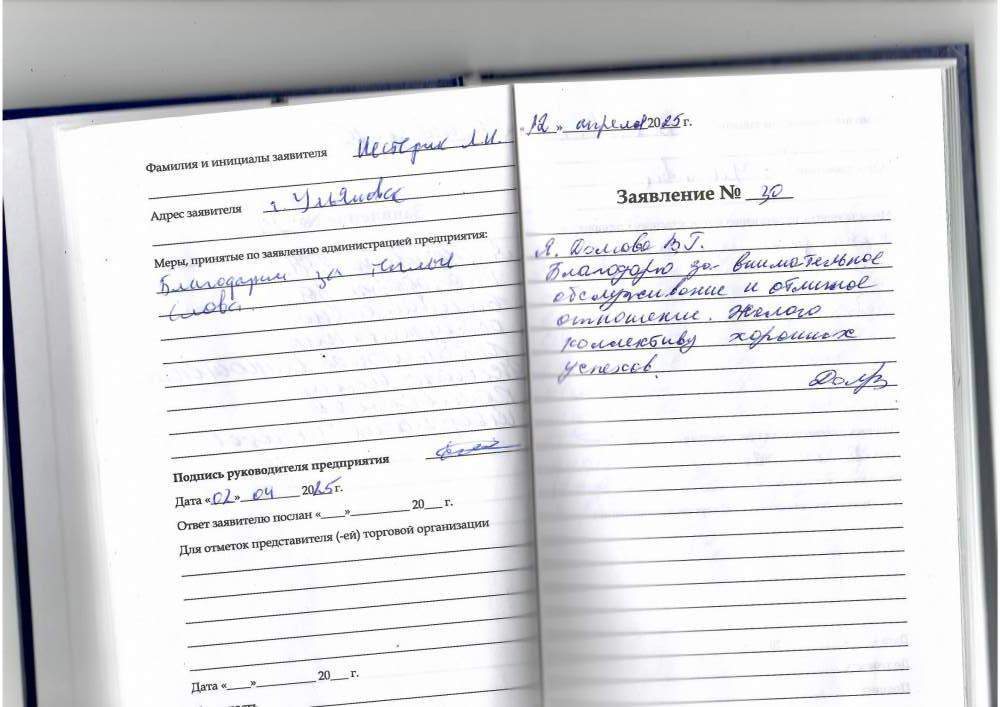 Фамилия и инициалы заявителя Нестерик Л.И.
Адрес заявителя г. Ульяновск
Меры, принятые по заявлению администрацией предприятия:
Благодарим за теплые
слова.
Подпись руководителя предприятия
Дата «02» 04 2025 г.
Ответ заявителю послан «___»_________ 20___ г.
Для отметок представителя (-ей) торговой организации
Дата «___»_________ 20___ г.
«12» апреля 2025 г.
Заявление № 30
Я. Долгова В.Г.
Благодарю за внимательное
обслуживание и отличное
отношение. Желаю
коллективу хороших
успехов.